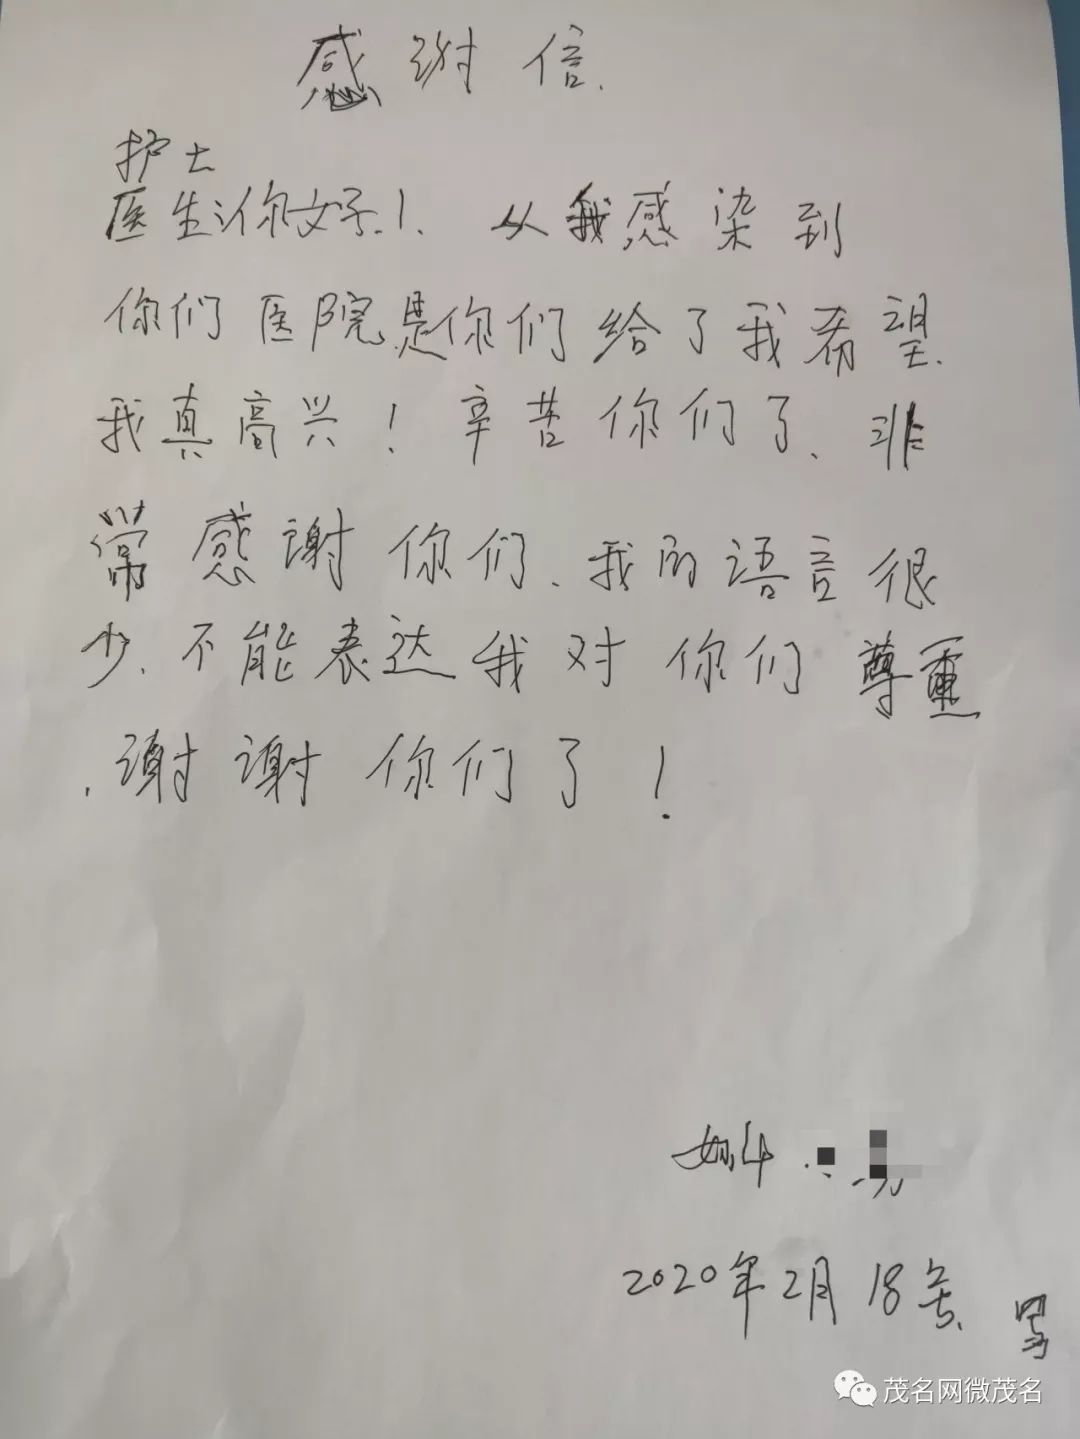 感谢信.
护士
医生你好!. 从我感染到
你们医院是你们给了我希望.
我真高兴! 辛苦你们了. 非
常感谢你们. 我的语言很
少. 不能表达我对你们尊重
. 谢谢你们了!
2020年2月18号.
写
茂名网微茂名